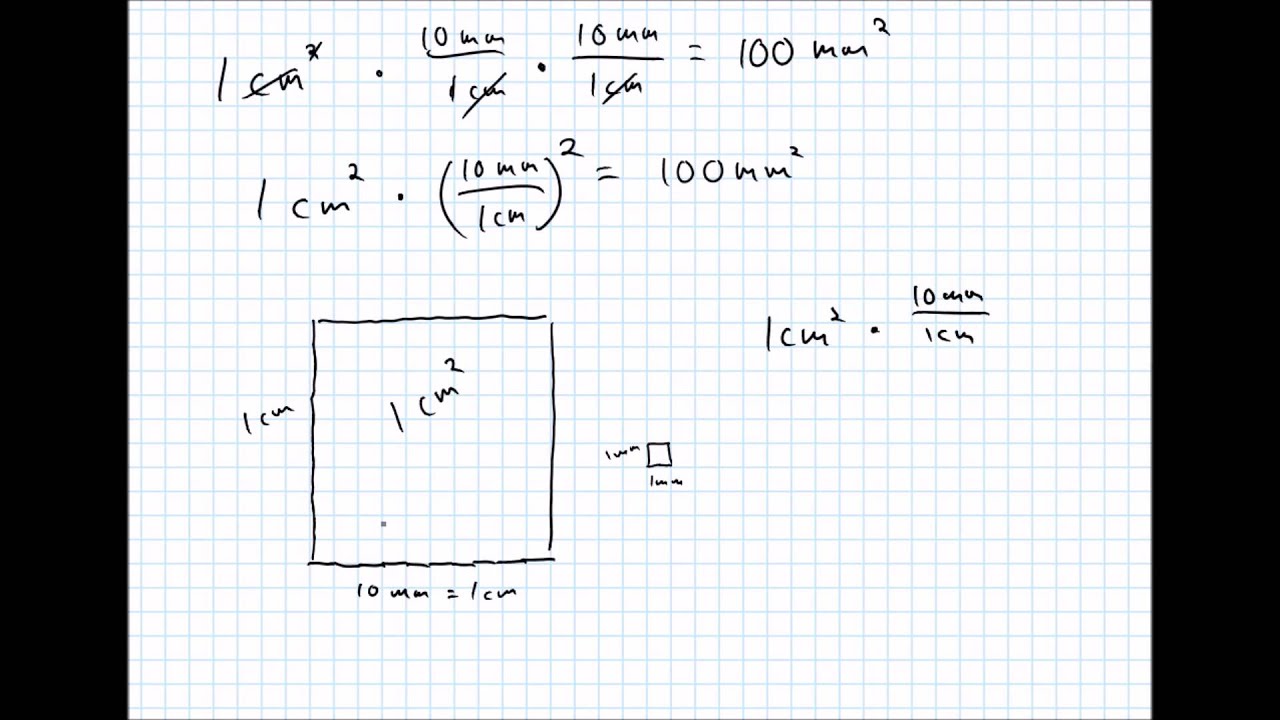 1 cm² · 10 mm / 1 cm · 10 mm / 1 cm = 100 mm²
1 cm² · (10 mm / 1 cm)² = 100 mm²
1 cm² · 10 mm / 1 cm
1 cm²
1 cm
1 mm
1 mm
10 mm = 1 cm